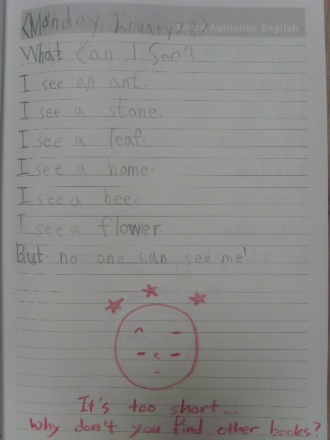 <Monday, January 28>
Authentic English
What Can I See?
I see an ant.
I see a stone.
I see a leaf.
I see a home.
I see a bee.
I see a flower.
But no one can see me!
It's too short...
Why don't you find other books?